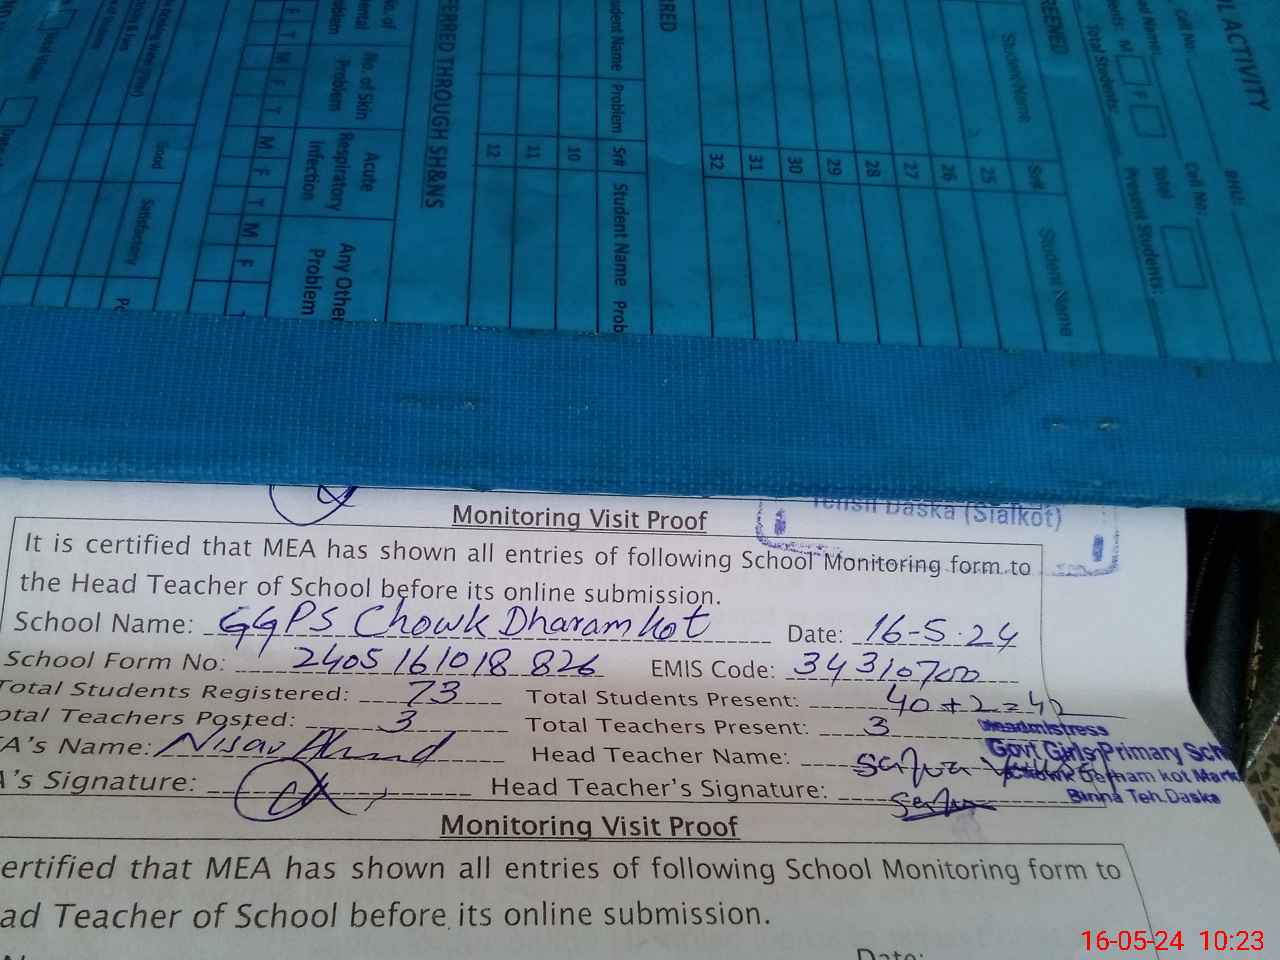 L ACTIVITY
BHU:
Call No.
Call No.:
Total
Present Students:
M F
Total Students:
Sr#
Student Name
25
26
27
28
29
30
31
32
Student Name Problem Sr# Student Name Prob
10
11
12
ERRED THROUGH SH&NS
No. of Skin Problem
Acute Respiratory Infection
Any Other Problem
F T M F T M F T M F T
Good
Satisfactory
Tehsil Daska (Sialkot)
Monitoring Visit Proof
It is certified that MEA has shown all entries of following School Monitoring form to
the Head Teacher of School before its online submission.
School Name: GGPS Chowk Dharam kot Date: 16-5-24
School Form No: 2405161018826 EMIS Code: 34310700
Total Students Registered: 73 Total Students Present: 40+2=42
otal Teachers Posted: 3 Total Teachers Present: 3
Headmistress
EA's Name: Nisar Ahmad Head Teacher Name:
Govt Girls Primary Sch
A's Signature: Head Teacher's Signature:
Teh. Daska
Monitoring Visit Proof
ertified that MEA has shown all entries of following School Monitoring form to
ad Teacher of School before its online submission.
Date:
16-05-24 10:23